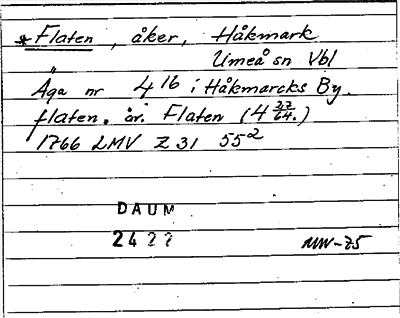 *Flaten, åker, Håkmark
Umeå sn Vbl
Äga nr 4 16 i Håkmarcks By.
flaten. åv. Flaten (4 27/64.)
1766 LMV Z 31 55²
DAUM
24??
MW-75